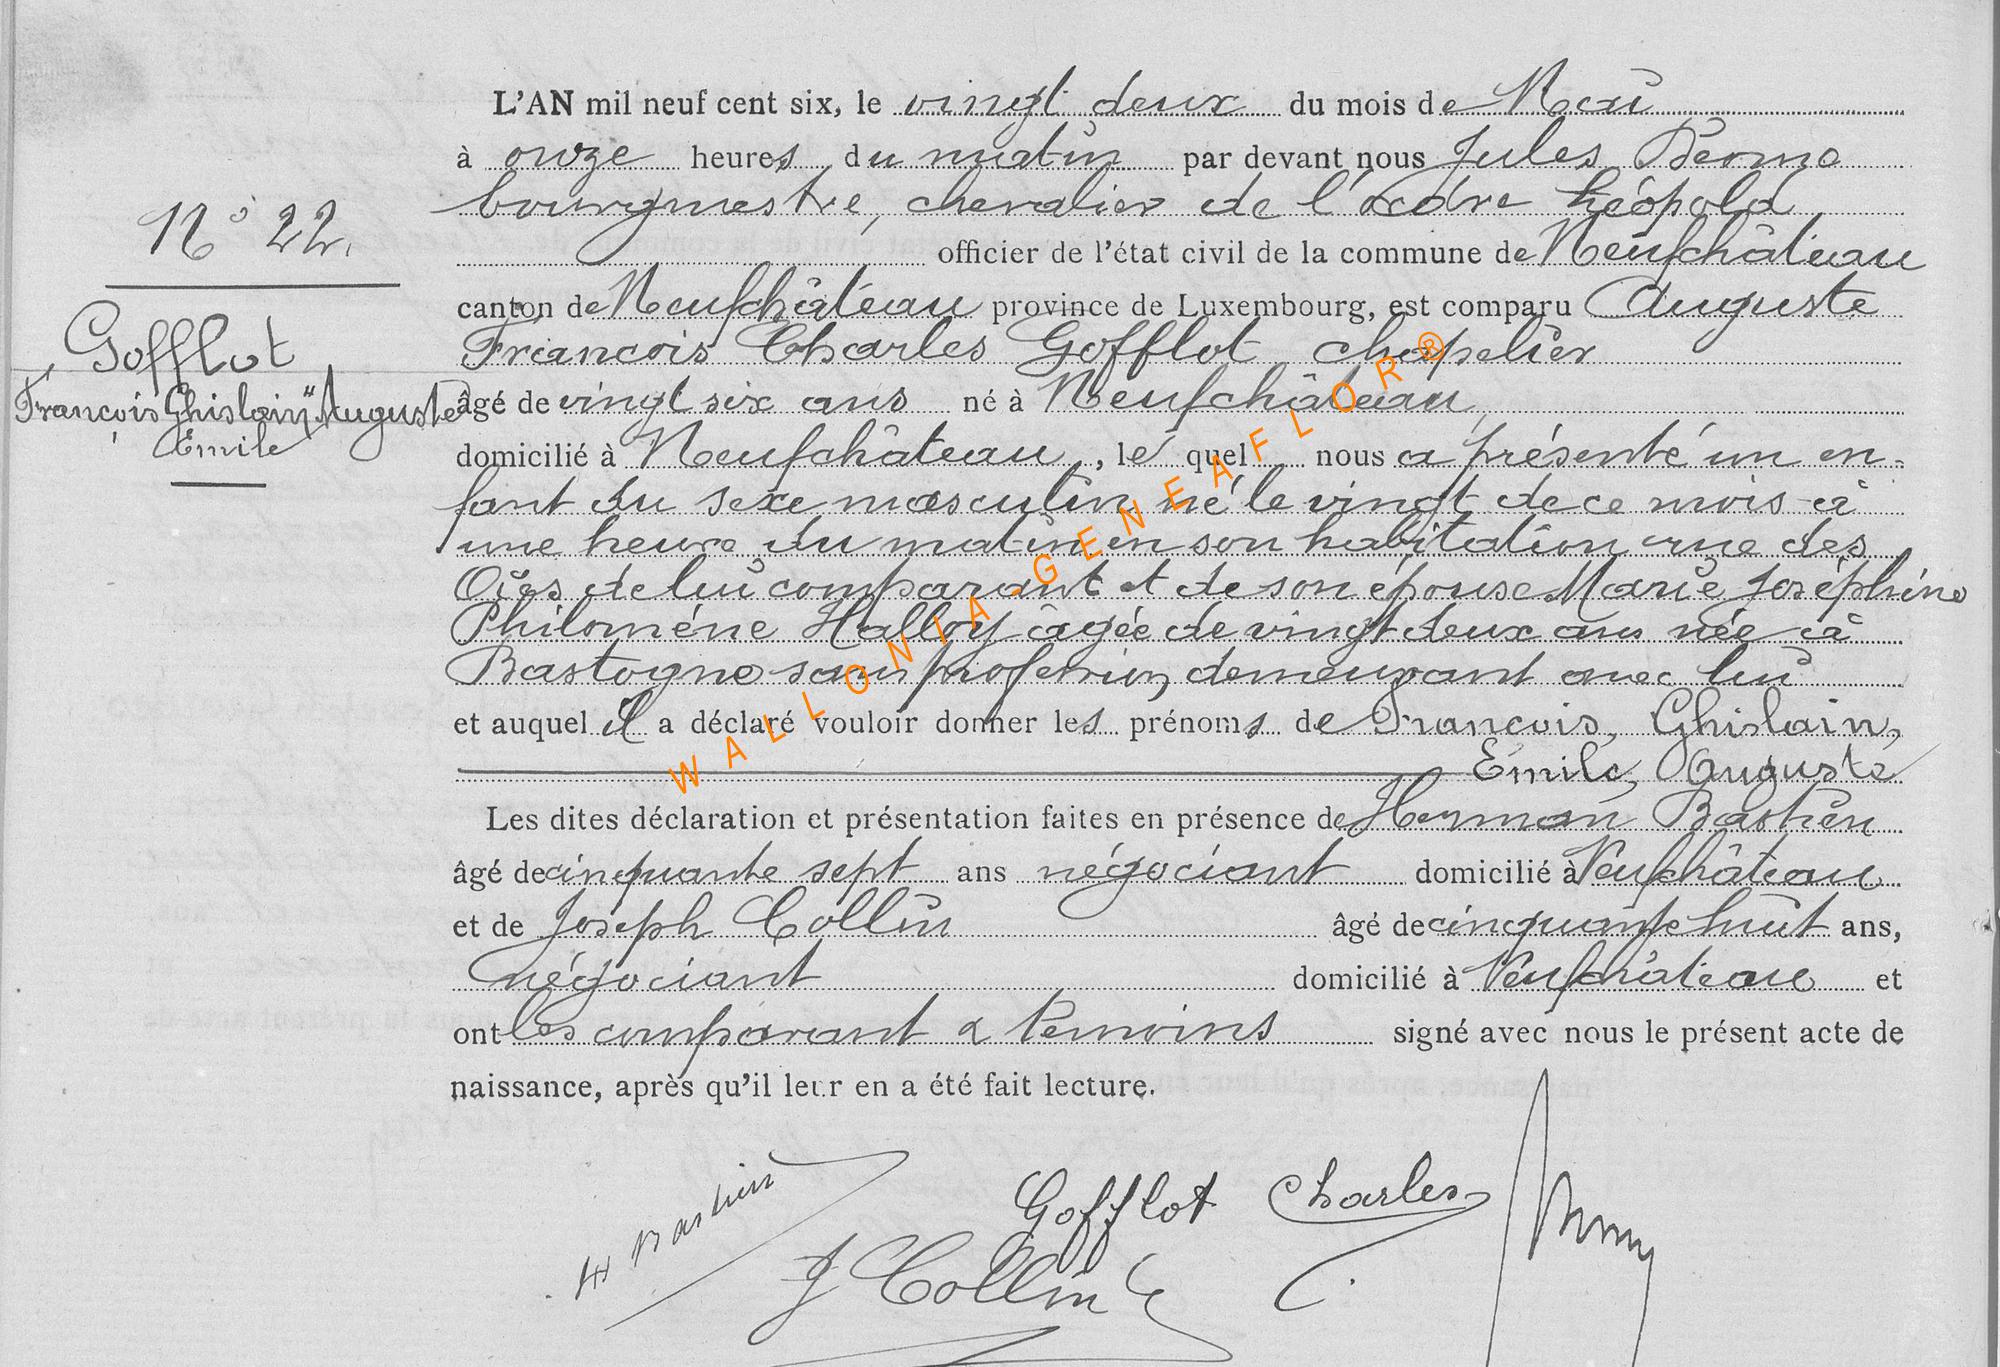 L'AN mil neuf cent six, le vingt deux du mois de Mai
à onze heures du matin par devant nous Jules
bourgmestre, chevalier de l'ordre Léopold
N° 22.
officier de l'état civil de la commune de Neufchâteau
canton de Neufchâteau province de Luxembourg, est comparu Auguste
Gofflot
François Charles Gofflot chapelier
François Ghislain Auguste
Emile
âgé de vingt six ans né à Neufchâteau
domicilié à Neufchâteau, le quel nous a présenté un en-
fant du sexe masculin né le vingt de ce mois à
une heure du matin en son habitation rue des
de lui comparant et de son épouse Marie Joséphine
Philomène Halloy âgée de vingt deux ans née à
Bastogne sans profession, demeurant avec lui
et auquel il a déclaré vouloir donner les prénoms de François, Ghislain,
Emile, Auguste
Les dites déclaration et présentation faites en présence de Herman Bastien
âgé de cinquante sept ans négociant domicilié à Neufchâteau
et de Joseph Collin âgé de cinquante huit ans,
négociant domicilié à Neufchâteau et
ont les comparant & témoins signé avec nous le présent acte de
naissance, après qu'il leur en a été fait lecture.
H Bastien
Gofflot Charles
J Collin
WALLONIA-GENEAFLOR®